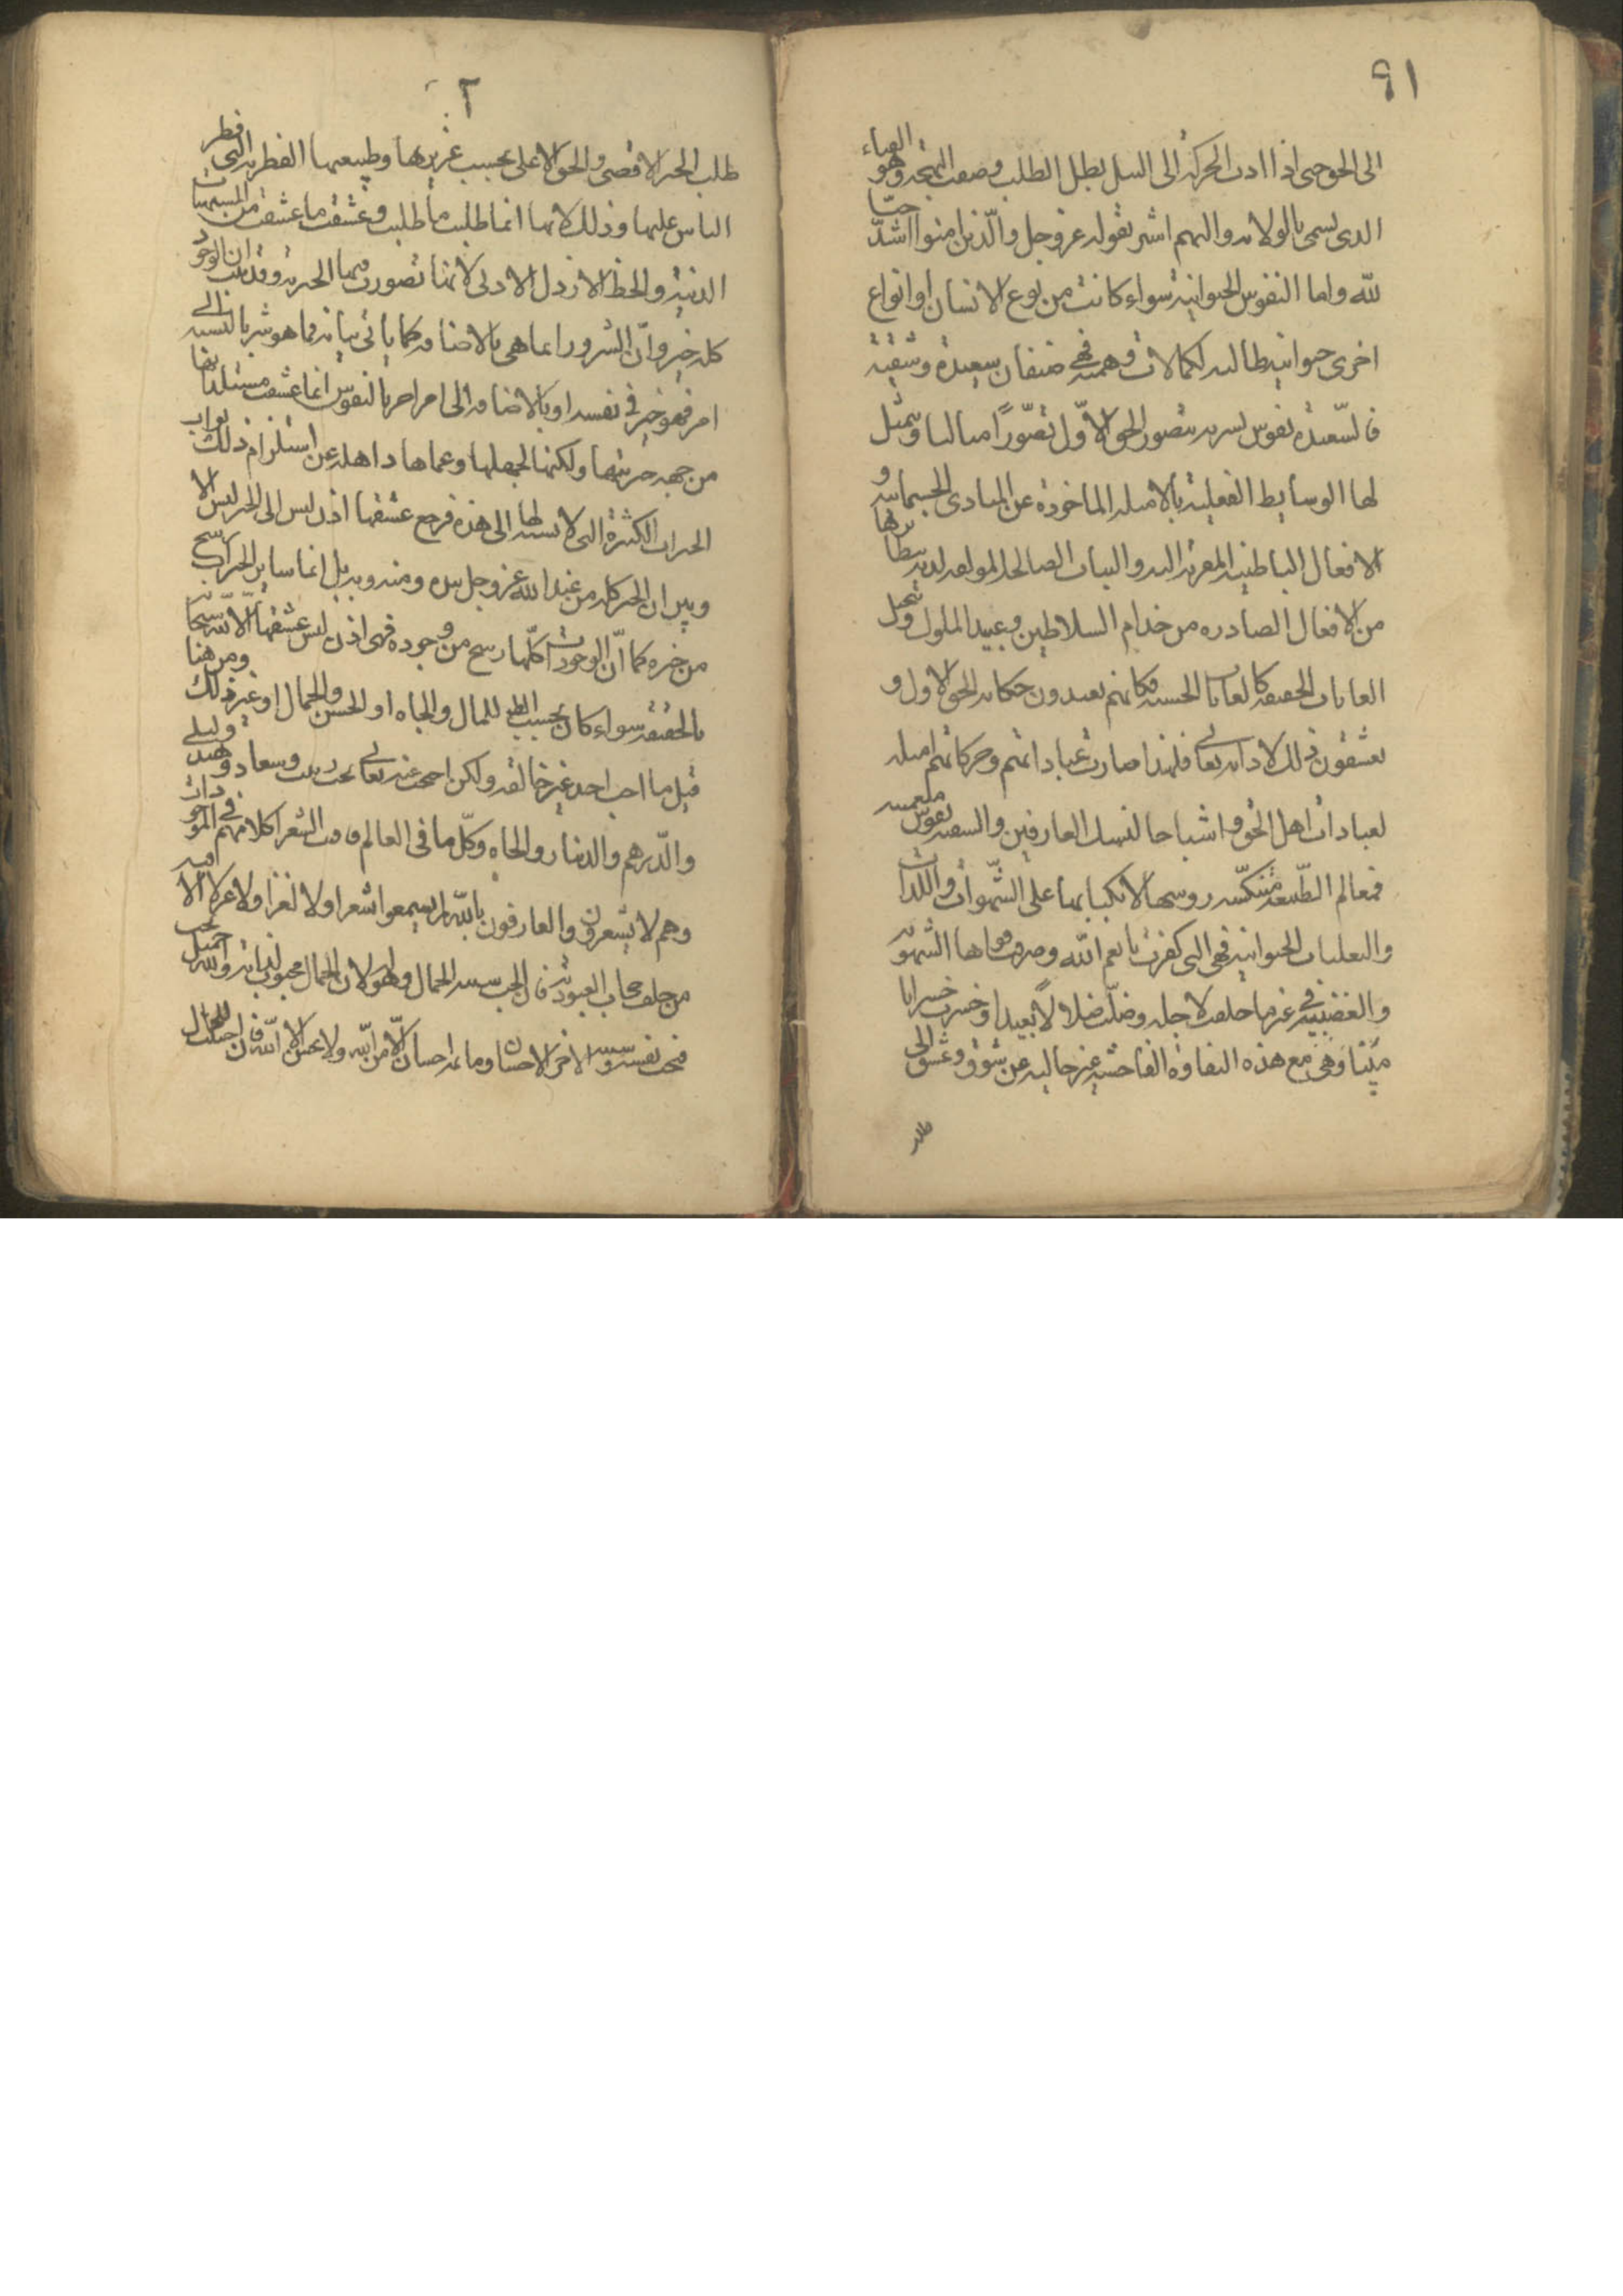 ٩١
الى الحق حتى اذا ادت الحركة الى النيل بطل الطلب وصفت البهجة وهو الفناء
الذى يسمى بالولاية واليهم اشير بقوله عز وجل والّذين امنوا اشدّ حبّا
للّه واما النفوس الحيوانية سواء كانت من نوع الانسان او انواع
اخرى حيوانية طالبة لكمالات وهمية فهى صنفان سعيدة وشقية
فالسّعيدة نفوس بشرية تتصور الحق الاوّل تصّورًا مثاليا ويمثل
لها الوسايط الفعلية بالامثلة الماخوذة عن المبادى الجسمانية و
الافعال الباطنية المقربة اليه والنيات الصالحة المولعة لديه بنظائرها
من الافعال الصادرة من خدام السلاطين وعبيد الملوك وتخيل
الغايات الحقيقة كالغايات الحسية فكانهم يعبدون حكاية الحق الاول و
يعشقون ذلك لا ذاته تعالى فلهذا صارت عباداتهم وحركاتهم امثلة
لعبادات اهل الحق واشباحا لنسك العارفين والشقية نفوس منغمسة
فى عالم الطّبيعة متنكّسة روسها لانكبابها على الشّهوات واللّذات
والتعلقات الحيوانية فهى التى كفرت بانعم اللّه وصرفت قواها الشهوية
والغضبية فى غير ما خلقت لاجله وضلّت ضلالاً بعيدا وخسرت خسرانا
مبينا وهى مع هذه الشقاوة الفاحشة غير خالية عن شوق وعشق الى
طلب
٢
طلب الخير الاقصى والحق الاعلى بحسب غريزتها وطبيعتها الفطرية التى فطر
الناس عليها وذلك لانها انما طلبت ما طلبت وعشقت ما عشقت من المشتهيات
الدنية والحظ الارذل الادنى لانها تصورت فيها الخيرية وقد ثبت ان الوجود
كله خير وانّ الشرور انما هى بالاضافة كما ياتى بيانه فما هو شر بالنسبة الى
امر فهو خير فى نفسه او بالاضافة الى امر اخر بالنفوس انما عشقت مستلذاتها
من جهة خيريتها ولكنها لجهلها وعماها ذاهلة عن استلزام ذلك فوات
الخيرات الكثيرة التى لا نسبة لها الى هذه فرجع عشقها اذن ليس الى الخير ليس الا
وتبين ان الخير كله من عند اللّه عز وجل بيده ومنه وبه بل انما ساير الخيرات رشح
من خيره كما انّ الوجودات كلّها رشح من وجوده فهى اذن ليس عشقها الّا للّه سبحانه
بالحقيقة سواء كان بحسب الظ للمال والجاه او الحسن والجمال او غير ذلك ومن هنا
قيل ما احب احد غير خالقه ولكن احتجب عنه تعالى تحت زينب وسعاد وهند وليلى
والدّرهم والدينار والجاه وكلّ ما فى العالم فافنت الشعرا كلامهم فى الموجودات
وهم لا يشعرون والعارفون باللّه لم يسمعوا شعرا ولا لغزا ولا غزلا الا فيه
من خلف حجاب العبودية فان الحب سببه الجمال وهو له لان الجمال محبوب لذاته واللّه جميل يحب
فيحب نفسه وسببه الاخر الاحسان وما ثمه احسان الّا من اللّه ولا محسن الا اللّه فان احببت للجمال